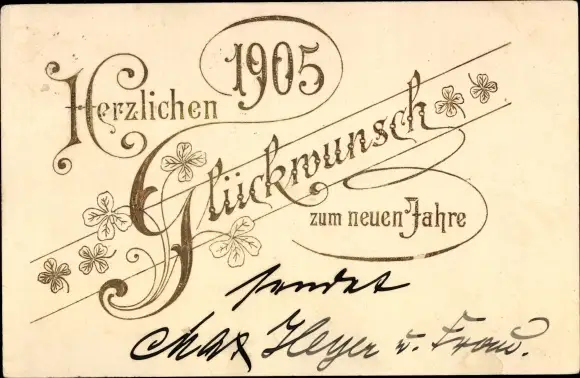 1905
Herzlichen
Glückwunsch
zum neuen Jahre
sendet
Max Heyer u. Frau.